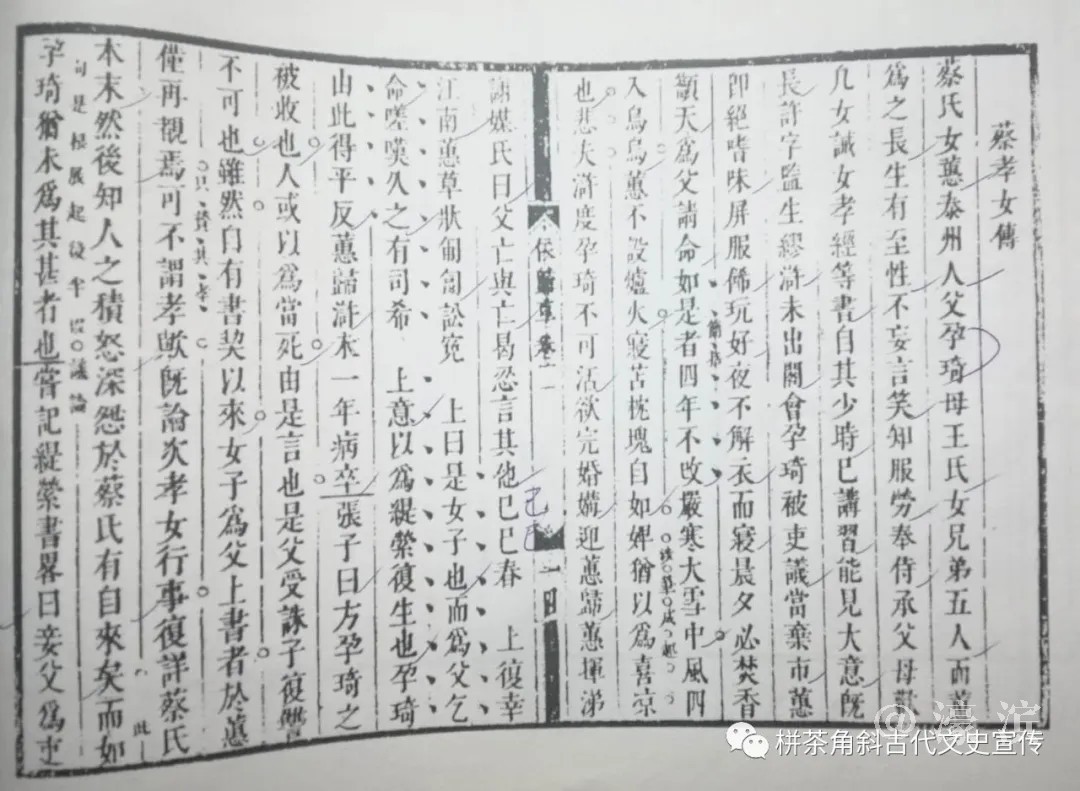 蔡孝女傳
蔡氏女蕙泰州人父孕琦母王氏女兄弟五人而蕙
爲之長生有至性不妄言笑知服勞奉侍承父母歡
凡女誡女孝經等書自其少時已講習能見大意旣
長許字監生繆滸未出閣會孕琦被吏議當棄市蕙
卽絕嗜味屏服佈玩好夜不解衣而寢晨夕必焚香
籲天爲父請命如是者四年不改嚴寒大雪中風四
入烏烏蕙不設爐火寢苫枕塊自如婢猶以爲喜凉
也悲夫滸度孕琦不可活欲完婚媾迎蕙歸蕙揮涕
依歸草 卷二
二四
己巳
謝媒氏曰父亡與亡曷忍言其他巳巳春 上復幸
江南蕙草狀匍匐訟寃 上曰是女子也而爲父乞
命嗟嘆久之有司希 上意以爲緹縈復生也孕琦
由此得平反蕙歸滸未一年病卒張子曰方孕琦之
被收也人或以爲當死由是言也是父受誅子復讐
不可也雖然自有書契以來女子爲父上書者於蕙
僅再覩焉可不謂孝歟旣論次孝女行事復詳蔡氏
本末然後知人之積怒深怨於蔡氏有自來矣而如
孕琦猶未爲其甚者也嘗記緹縈書畧曰妾父爲吏
只贊其孝
此
句是根展起後半
議論
栟茶角斜古代文史宣传
@濠滨